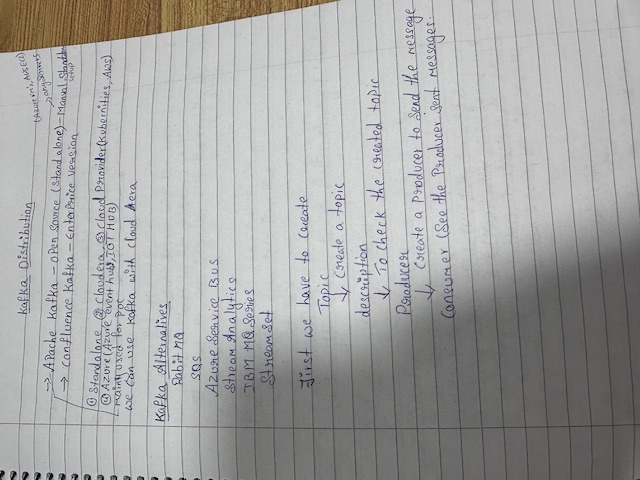 Kafka Distribution
(Azure vm's, AWS EC2)
→ any servers
→ Apache Kafka - open source (Standalone) - Manual, Standalone setup
→ Confluence Kafka - Enterprice version
① Standalone, ② Cloudera, ③ Cloud Provider (Kubernities, AWS)
④ Azure (Azure event hub, IOT HUB)
mainly used for poc
we can use Kafka with cloud Aera
Kafka Alternatives
Rabit MQ
SQS
Azure Service Bus
Stream Analytics
IBM MQ Series
Stream Set
First we have to create
Topic
↓ create a topic
description
↓ To check the created topic
Producer
↓ create a Producer to send the message
Consumer (See the Producer sent messages.